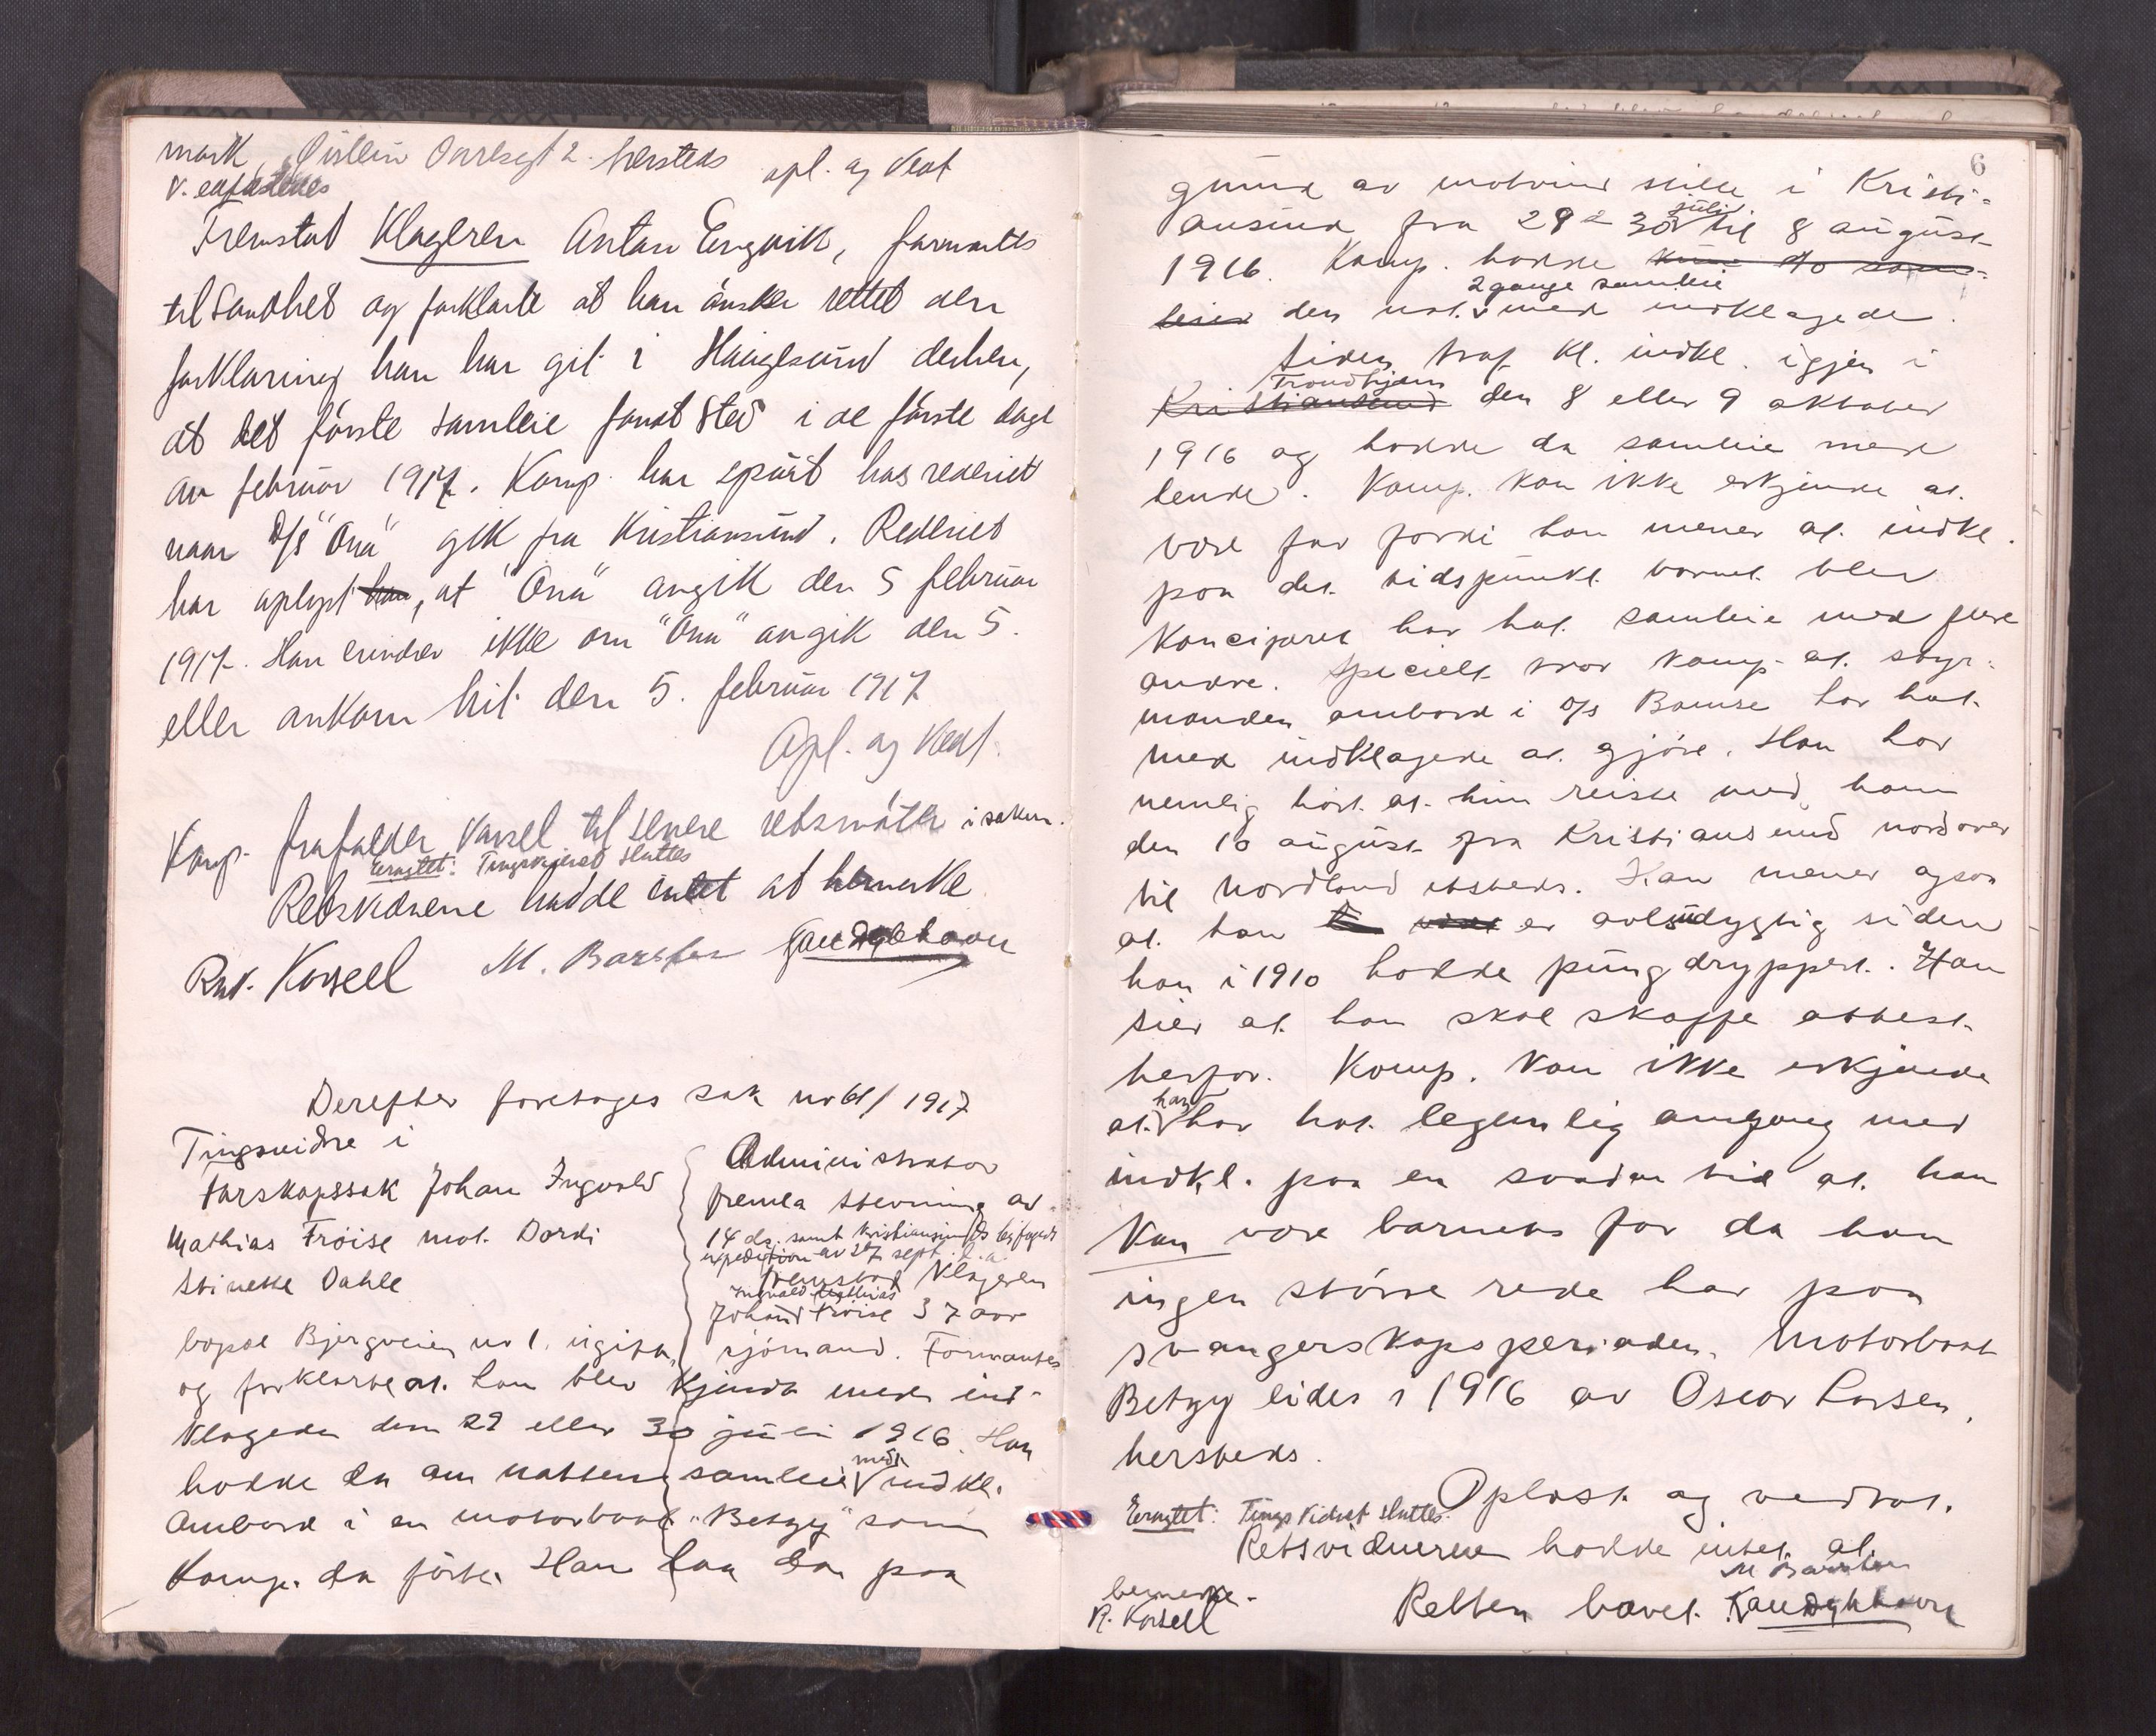 mark, Öivlein 2. hersteds opl. og Vedt
V.
Fremstod Klageren Anton Engvik, formantes
til Sandhet og forklarte at han önsker rettet den
forklaring han har git i Haugesund derhen,
at det förste samleie fandt sted i de förste dage
av februar 1917. Komp. har spurt hos rederiet
naar D/S "Ona" gik fra Kristiansund. Rederiet
har oplyst han, at "Ona" avgik den 5 februar
1917. Han erindrer ikke om "Ona" avgik den 5.
eller ankom hit den 5. februar 1917
Opl. og Vedt.
Komp. frafalder varsel til senere retsmöter i saken.
Eragtet: Tingsvidnet sluttes
Retsvidnene hadde intet at bemerke
R. Korsell M.
Derefter foretages sak nr 61/1917
Tingsvidne i
farskapssak Johan Ingvald
Mathias Fröise mot. Dordi
Stineke Dahle
Administrator
fremla stevning av
14 ds. samt Kristiansunds byfogds
expedition av 27 sept. d.a
Fremstod Klageren
Ingvald Mathias
Johan Fröise 37 aar
bopæl Bjergveien nr 1. ugift, sjömand. Formantes
og forklarte at. han blev kjendt med ind-
klagede den 29 eller 30 juli 1916. Han
hadde da om natten samleie med indkl.
ombord i en motorbaat "Betzy" som
Komp. da förte. Han laa da paa
6
grund av motvind stille i Kristi-
ansund fra 29 á 30 juli til 8 august
1916. Komp. hadde kun to sam-
leier den nat. 2 gange samleie med indklagede.
Siden traf Kl. indkl. igjen i
Kristiansund Trondhjem den 8 eller 9 oktober
1916 og hadde da samleie med
hende. Komp. kan ikke erkjende at.
være far fordi han mener at. indkl.
paa det. tidspunkt. barnet. blev
konciperet har hat. samleie med flere
andre. Specielt. tror komp. at. styr-
manden ombord i D/S Bamse har hat.
med indklagede at. gjöre. Han har
nemlig hört. at. hun reiste med ham
den 10 august fra Kristiansund nordover
til Nordland etsteds. Han mener ogsaa
at. han er avlsudygtig siden
han i 1910 hadde pungdryppert. Han
sier at. han skal skaffe attest.
herfor. Komp. kan ikke erkjende
at. han har hat. legemlig omgang med
indkl. paa en saadan tid at. han
kan være barnets far da han
ingen större rede har paa
svangerskapsperioden. Motorbaat
Betzy eides i 1916 av Oscar Larsen,
hersteds.
Oplæst. og vedtat.
Eragtet: Tingsvidnet sluttes.
Retsvidnerne hadde intet. at.
bemerke.
R. Korsell Retten hævet.